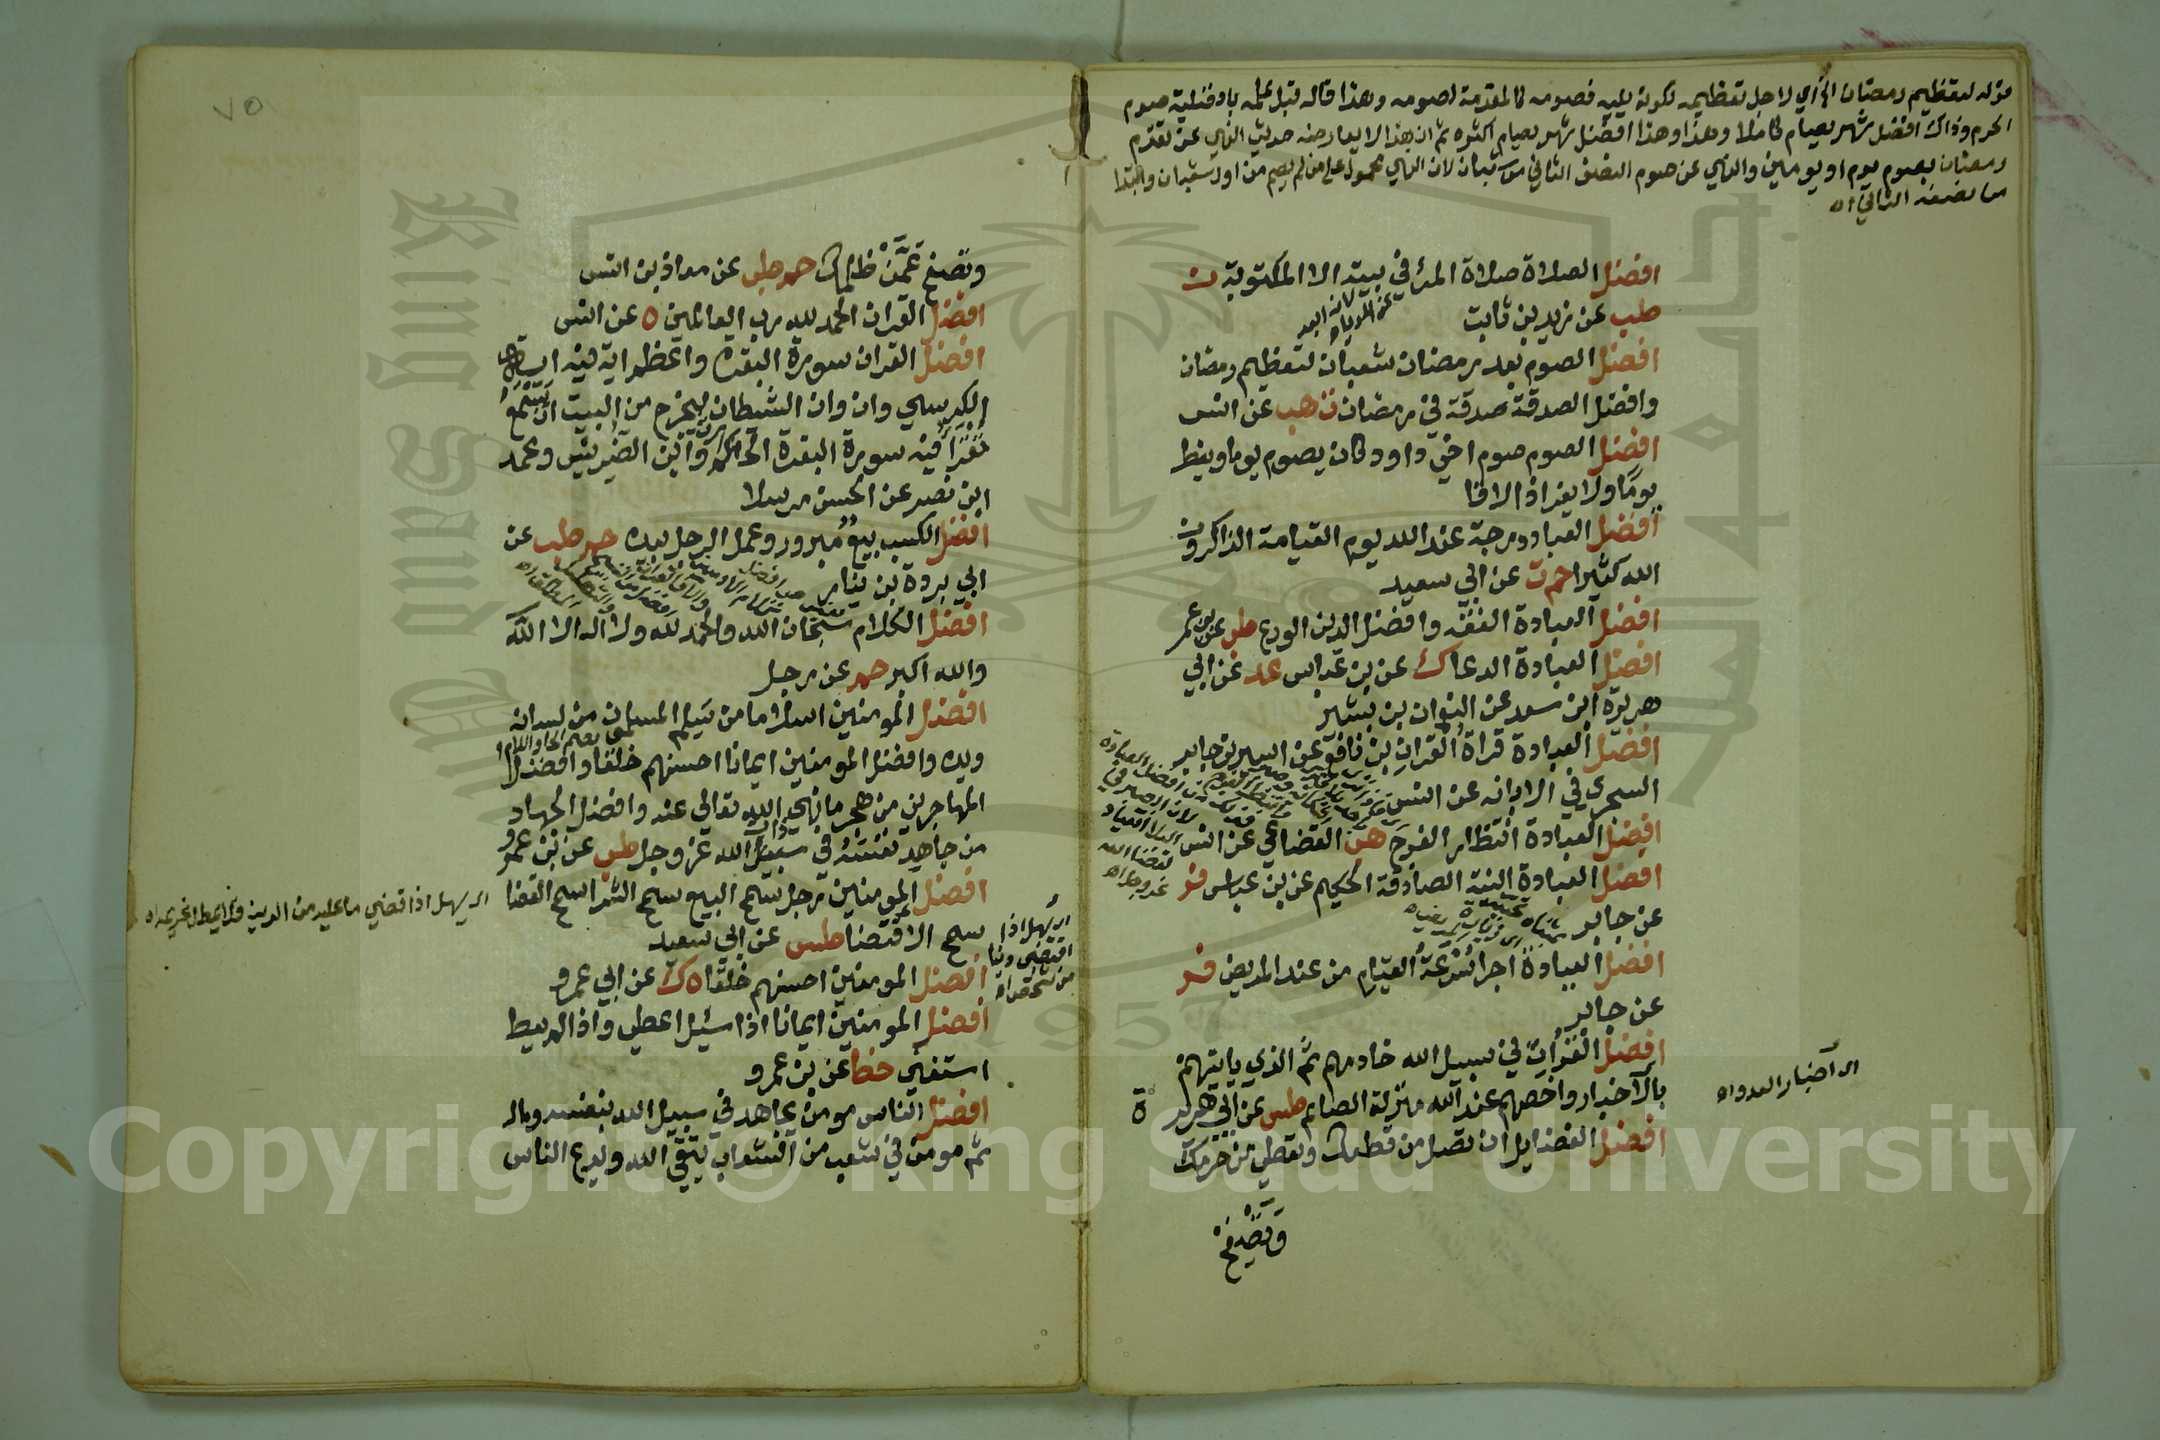 قوله لتعظيم رمضان الخ أي لاجل تعظيمه لكونه يليه فصومه كالمقدمة لصومه وهذا قاله قبل علمه بافضلية صوم
الحرم وذاك افضل شهر يصام كاملا وهذا وهذا افضل شهر يصام اكثره ثم ان هذا لا يعارضه حديث النهي عن تقدم
رمضان بصوم يوم او يومين والنهي عن صوم النصف الثاني من شعبان لان النهي محمول على من لم يصم من اول شعبان وابتدا
من نصفه الثاني اه
افضل الصلاة صلاة المرء في بيته الا المكتوبة ن
طب عن زيد بن ثابت
لانه ابعد عن الرياء
افضل الصوم بعد رمضان شعبان لتعظيم رمضان
وافضل الصدقة صدقة في رمضان ت هب عن انس
افضل الصوم صوم اخي داود كان يصوم يوما ويفطر
يوما ولا يفر اذا لاقا
افضل العباد درجة عند الله يوم القيامة الذاكرون
الله كثيرا حم ت عن ابي سعيد
افضل العبادة الفقه وافضل الدين الورع طب عن بن عمر
افضل العبادة الدعا ك عن بن عباس عد عن ابي
هريرة ابن سعد عن النعمان بن بشير
افضل العبادة قراة القران بن قانع عن اسير بن جابر
السجزي في الابانه عن انس
افضل العبادة انتظار الفرج هب القضاعي عن انس
افضل العبادة النية الصادقة الحكيم عن بن عباس فر
عن جابر
افضل العيادة اجرا سرعة القيام من عند المريض فر
عن جابر
افضل الغزاة في سبيل الله خادمهم ثم الذي ياتيهم
بالاخبار واخصهم عند الله منزلة الصايم طس عن ابي هريرة
اي اخبار العدو اه
افضل الفضايل ان تصل من قطعك وتعطي من حرمك
وتصفح
٧٥
وتصفح عمن ظلمك حم طب عن معاذ بن انس
افضل القران الحمد لله رب العالمين ه عن انس
افضل القران سورة البقرة واعظم اية فيه اية
الكرسي وان الشيطان ليخرج من البيت ان يسمع
تقرا فيه سورة البقرة الحارث وابن الضريس ومحمد
ابن نصر عن الحسن مرسلا
افضل الكسب بيع مبرور وعمل الرجل بيده حم طب عن
ابي بردة بن نيار
افضل الكلام سبحان الله والحمد لله ولا اله الا الله
والله اكبر حم عن رجل
افضل المومنين اسلاما من سلم المسلمون من لسانه
ويده وافضل المومنين ايمانا احسنهم خلقا وافضل
المهاجرين من هجر ما نهى الله تعالى عنه وافضل الجهاد
من جاهد نفسه في ذات الله عز وجل طب عن بن عمرو
افضل المومنين رجل سمح البيع سمح الشرا سمح القضا
سمح الاقتضا طس عن ابي سعيد
اي يسهل اذا قضى ما عليه من الدين فلا يمطل غريمه اه
اي يسهل اذا
اقتضى دينا
افضل المومنين احسنهم خلقا ه ك عن ابي عمرو
افضل المومنين ايمانا اذا سئيل اعطى واذا لم يعط
استغنى خط عن بن عمرو
افضل الناس مومن يجاهد في سبيل الله بنفسه وماله
ثم مومن في شعب من الشعاب يتقي الله ويدع الناس
King Saud University
1957
Copyright © King Saud University